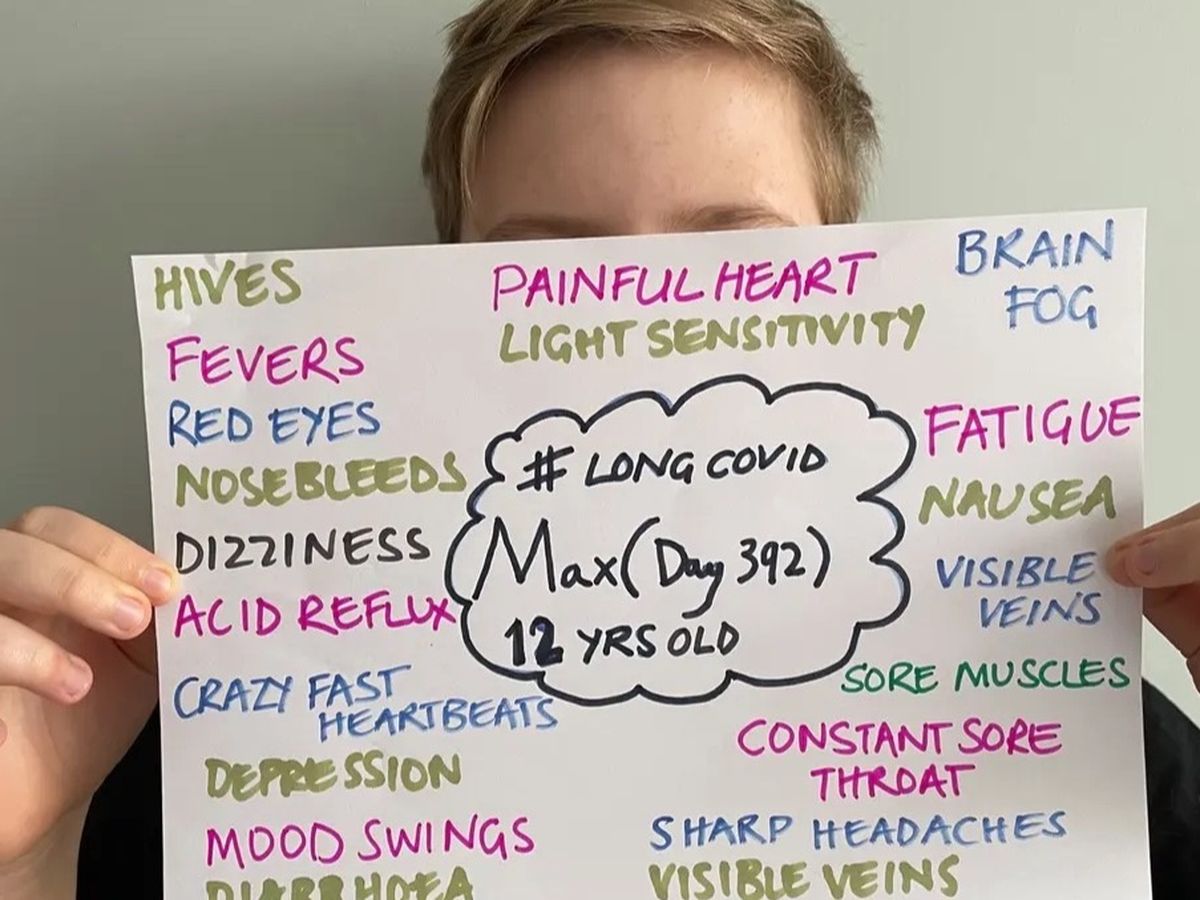 HIVES
FEVERS
RED EYES
NOSEBLEEDS
DIZZINESS
ACID REFLUX
CRAZY FAST
HEARTBEATS
DEPRESSION
MOOD SWINGS
DIARRHOEA
PAINFUL HEART
LIGHT SENSITIVITY
# LONG COVID
Max (Day 392)
12 YRS OLD
BRAIN
FOG
FATIGUE
NAUSEA
VISIBLE
VEINS
SORE MUSCLES
CONSTANT SORE
THROAT
SHARP HEADACHES
VISIBLE VEINS